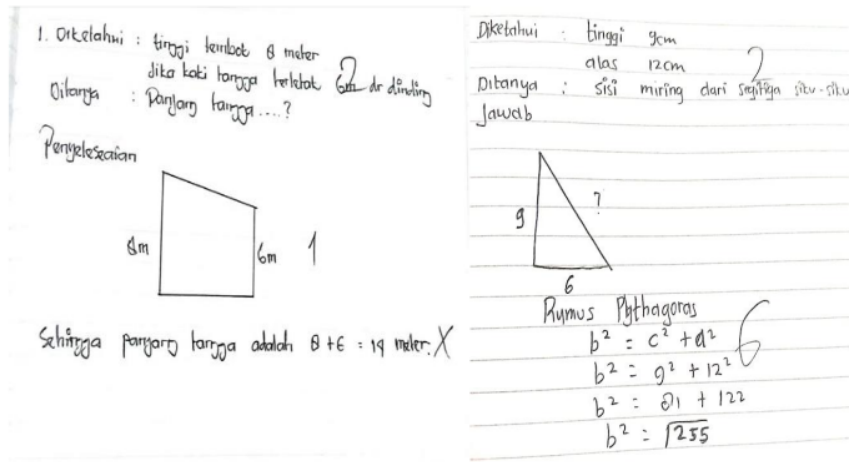 1. Diketahui : tinggi tembok 8 meter
Jika kaki tangga terletak 6m dr dinding
2
Ditanya : Panjang tangga....?
Penyelesaian
8m
6m
1
Sehingga panjang tangga adalah 8 + 6 = 14 meter. X
Diketahui : tinggi 9cm
alas 12cm
2
Ditanya : sisi miring dari segitiga siku-siku
Jawab
9
?
6
Rumus Pythagoras
b² = c² + a²
6
b² = 9² + 12²
b² = 81 + 122
b² = √255